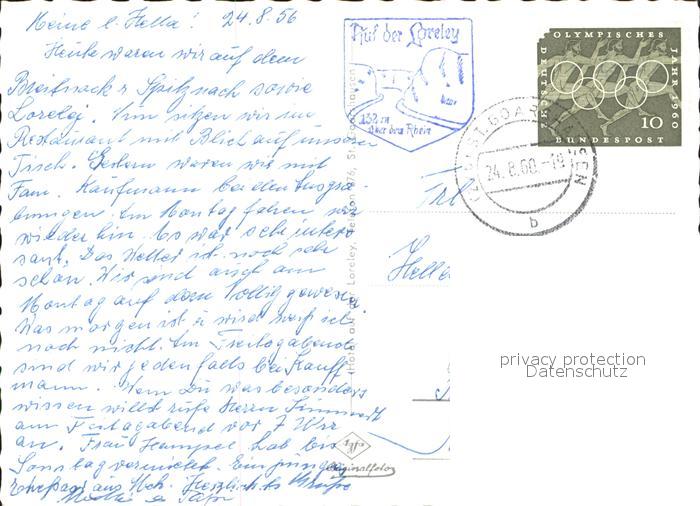 Meine l. Hella! 24.8.56
Heute waren wir auf dem
Spitznack sowie
Loreley. Nun sitzen wir im
Restaurant mit Blick auf unseren
Tisch. Gestern waren wir mit
Fam. Kaufmann bei den Ausgra-
bungen. Am Montag fahren wir
wieder hin. Es war sehr interes-
sant. Das Wetter ist noch sehr
schön. Wir sind auch am
Montag auf dem gewesen.
Was morgen ist u. wird weiß ich
noch nicht. Am Freitagabend
sind wir jedenfalls bei Kauff-
mann. Wenn Du was besonders
wissen willst rufe Herrn
am Freitagabend vor 7 Uhr
an. Frau Hampel hat bis
Sonntag vermietet. Ein junges
Ehepaar aus Herzlichste Grüße
Auf der Loreley
132 m
über dem Rhein
ST. GOARSHAUSEN
24.8.60.-18
b
OLYMPISCHES
JAHR 1960
DEUTSCHE
BUNDESPOST
10
Frl
Agfa
Originalfoto
privacy protection
Datenschutz